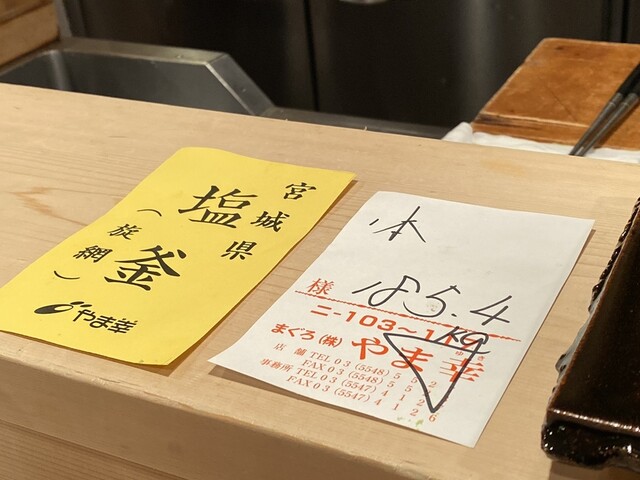 宮城県
塩釜
(旋網)
やま幸
本
185.4
KG
様
ニ-103~1
まぐろ(株)やま幸
店舗 TEL 03 (5548) 5
FAX 03 (5548) 5
事務所 TEL 03 (5547) 4
FAX 03 (5547) 4126